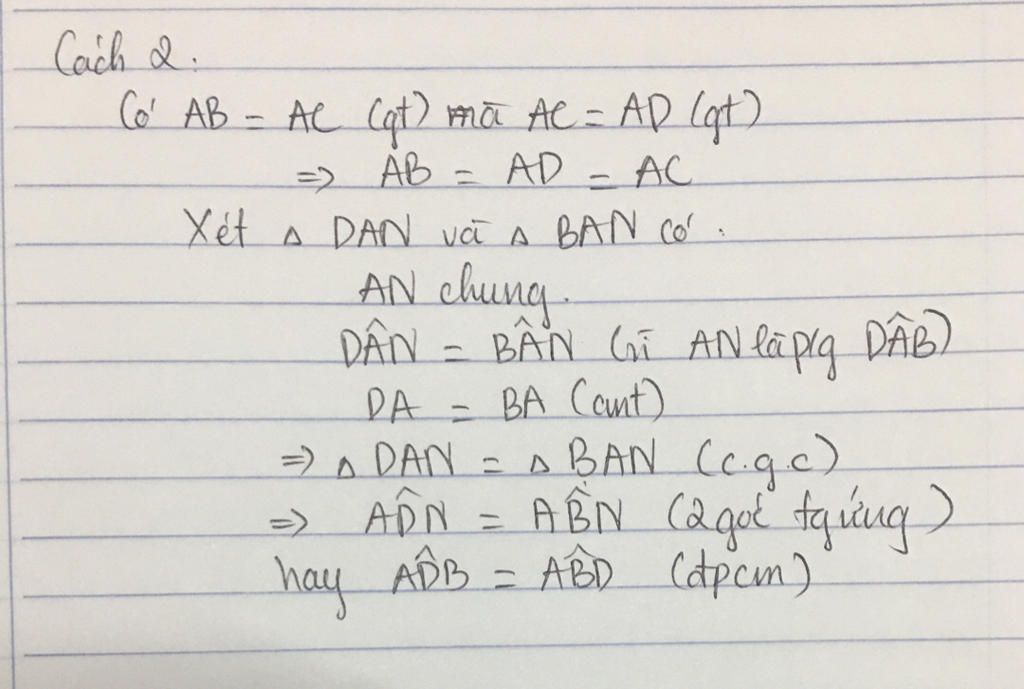 Cách 2:
Có AB = AC (gt) mà AC = AD (gt)
=> AB = AD = AC
Xét △ DAN và △ BAN có:
AN chung.
DÂN = BÂN (vì AN là p/g DÂB)
DA = BA (cmt)
=> △ DAN = △ BAN (c.g.c)
=> AD̂N = AB̂N (2 góc tg ứng)
hay AD̂B = AB̂D (đpcm)